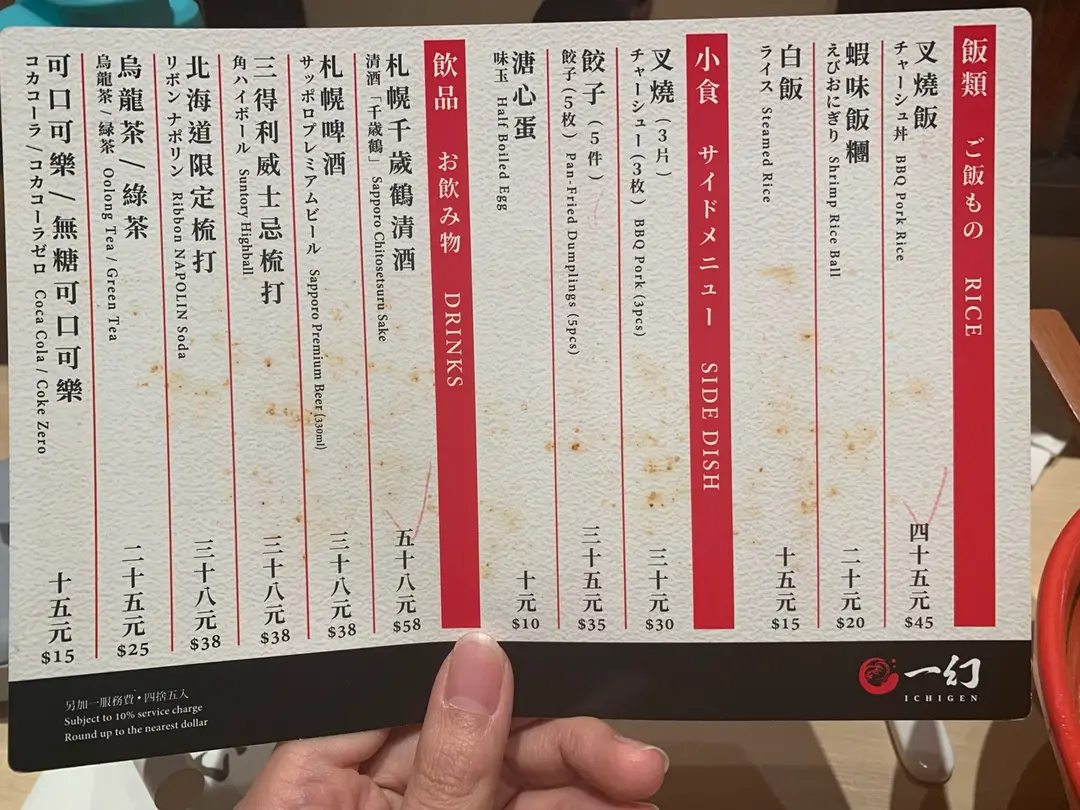 飯類 ご飯もの RICE
叉燒飯
チャーシュ丼 BBQ Pork Rice
四十五元
$45
蝦味飯糰
えびおにぎり Shrimp Rice Ball
二十元
$20
白飯
ライス Steamed Rice
十五元
$15
小食 サイドメニュー SIDE DISH
叉燒（3片）
チャーシュー（3枚） BBQ Pork (3pcs)
三十元
$30
餃子（5件）
餃子（5枚） Pan-Fried Dumplings (5pcs)
三十五元
$35
溏心蛋
味玉 Half Boiled Egg
十元
$10
飲品 お飲み物 DRINKS
札幌千歲鶴清酒
清酒「千歳鶴」 Sapporo Chitosetsuru Sake
五十八元
$58
札幌啤酒
サッポロプレミアムビール Sapporo Premium Beer (330ml)
三十八元
$38
三得利威士忌梳打
角ハイボール Suntory Highball
三十八元
$38
北海道限定梳打
リボン ナポリン Ribbon NAPOLIN Soda
三十八元
$38
烏龍茶/綠茶
烏龍茶/緑茶 Oolong Tea / Green Tea
二十五元
$25
可口可樂/無糖可口可樂
コカコーラ/コカコーラゼロ Coca Cola / Coke Zero
十五元
$15
另加一服務費・四捨五入
Subject to 10% service charge
Round up to the nearest dollar
一幻
ICHIGEN